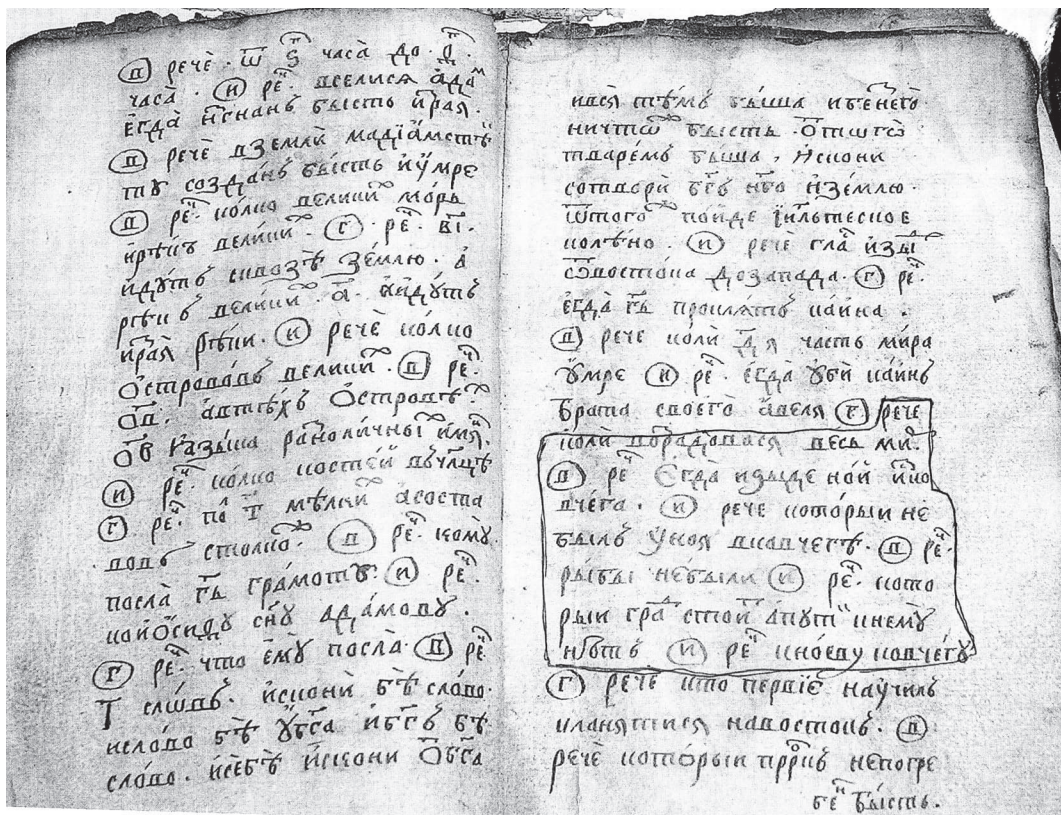 п речѐ · ѿ ѕ҃ часа̀ до · ѳ҃ ·
часа̀ · и реⷱ҇ · вселися а҆даⷨ
е҆гда̀ и҆згнанъ бысть и҆ꙁрая̀ ·
п речѐ вꙁемлѝ мадїа́мстѣ
ту созда́нъ бы́сть иу҆́мре
п реⷱ҇ · колко велики́ⷯ мо́рь
ирѣкъ вели́киⷯ · г · реⷱ҇ · в҃і ·
и҆ду́тъ сквоꙁѣ ꙁе́млю · а҆
рѣкъ вели́киⷯ · л҃ · аи҆ду́тъ
и҆ꙁрая̀ рѣки · и речѐ ко́лко
ѻ҆строво́въ вели́киⷯ · п реⷱ҇ ·
о҃в · а҆втѣ́хъ ѻ҆стровѣⷯ
о҃в ꙗ҆зы́ка раꙁноли́чныⷯ и҆мя ·
и реⷱ҇ · ко́лко косте́й вчл҃цѣ
г реⷱ҇ · т҃ мѣ́лкиⷯ а҆соста
вовъ столкоⷤ · п реⷱ҇ · кому̀
посла̀ гд҇ь гра́моту · и реⷱ҇ ·
сн҃у ада́мову ·
г реⷱ҇ · что е҆му̀ посла̀ · п реⷱ҇
т҃ сло́въ · и҆сконѝ бѣ̀ сло́во ·
исло́во бѣ̀ ѹ҆бг҃а и҆бг҃ъ бѣ̀
сло́во · и҆се́бѣ̀ и҆скони ѻ҆бг҃а
ився̀ тѣ́мъ бы́ша ибеꙁнего̀
ничтоⷤ бы́сть · ѻ҆тогѡ̀
тваре́мъ бы́ша , и҆скони
сотворѝ бг҃ъ нб҃о иꙁе́млю ·
ѿтогоⷤ по́йде і҆ил҃ьтеское
колѣ́но · и речѐ гла́
востока доꙁапада · г реⷱ҇ ·
е҆гда̀ гд҇ь проклятъ ка́ина ·
п рече коли̏ д҃я часть ми́ра
у҆́мре и реⷱ҇ · е҆гда ѹ҆бѝ ка́инъ
бра́та своего̀ а҆́веля г рече
коли̏ воꙁра́довася весь миⷬ ·
п реⷱ҇ Е҆гда иꙁы́де ной и҆ꙁко
вче́га · и рече которыи не
былъ у҆ноя вковчегѣ · п реⷱ҇ ·
ры́бы небыли и реⷱ҇ · кото
рыи граⷣ стоиⷮ апутиⷩ кнему̀
нѣтъ и реⷱ҇ кноеву ковче́гу
г рече кто первїе нау҆чилъ
кланятися навостокъ · п
речѐ кото́рыи прⷪ҇ркъ непогре
беⷩ бы́сть .